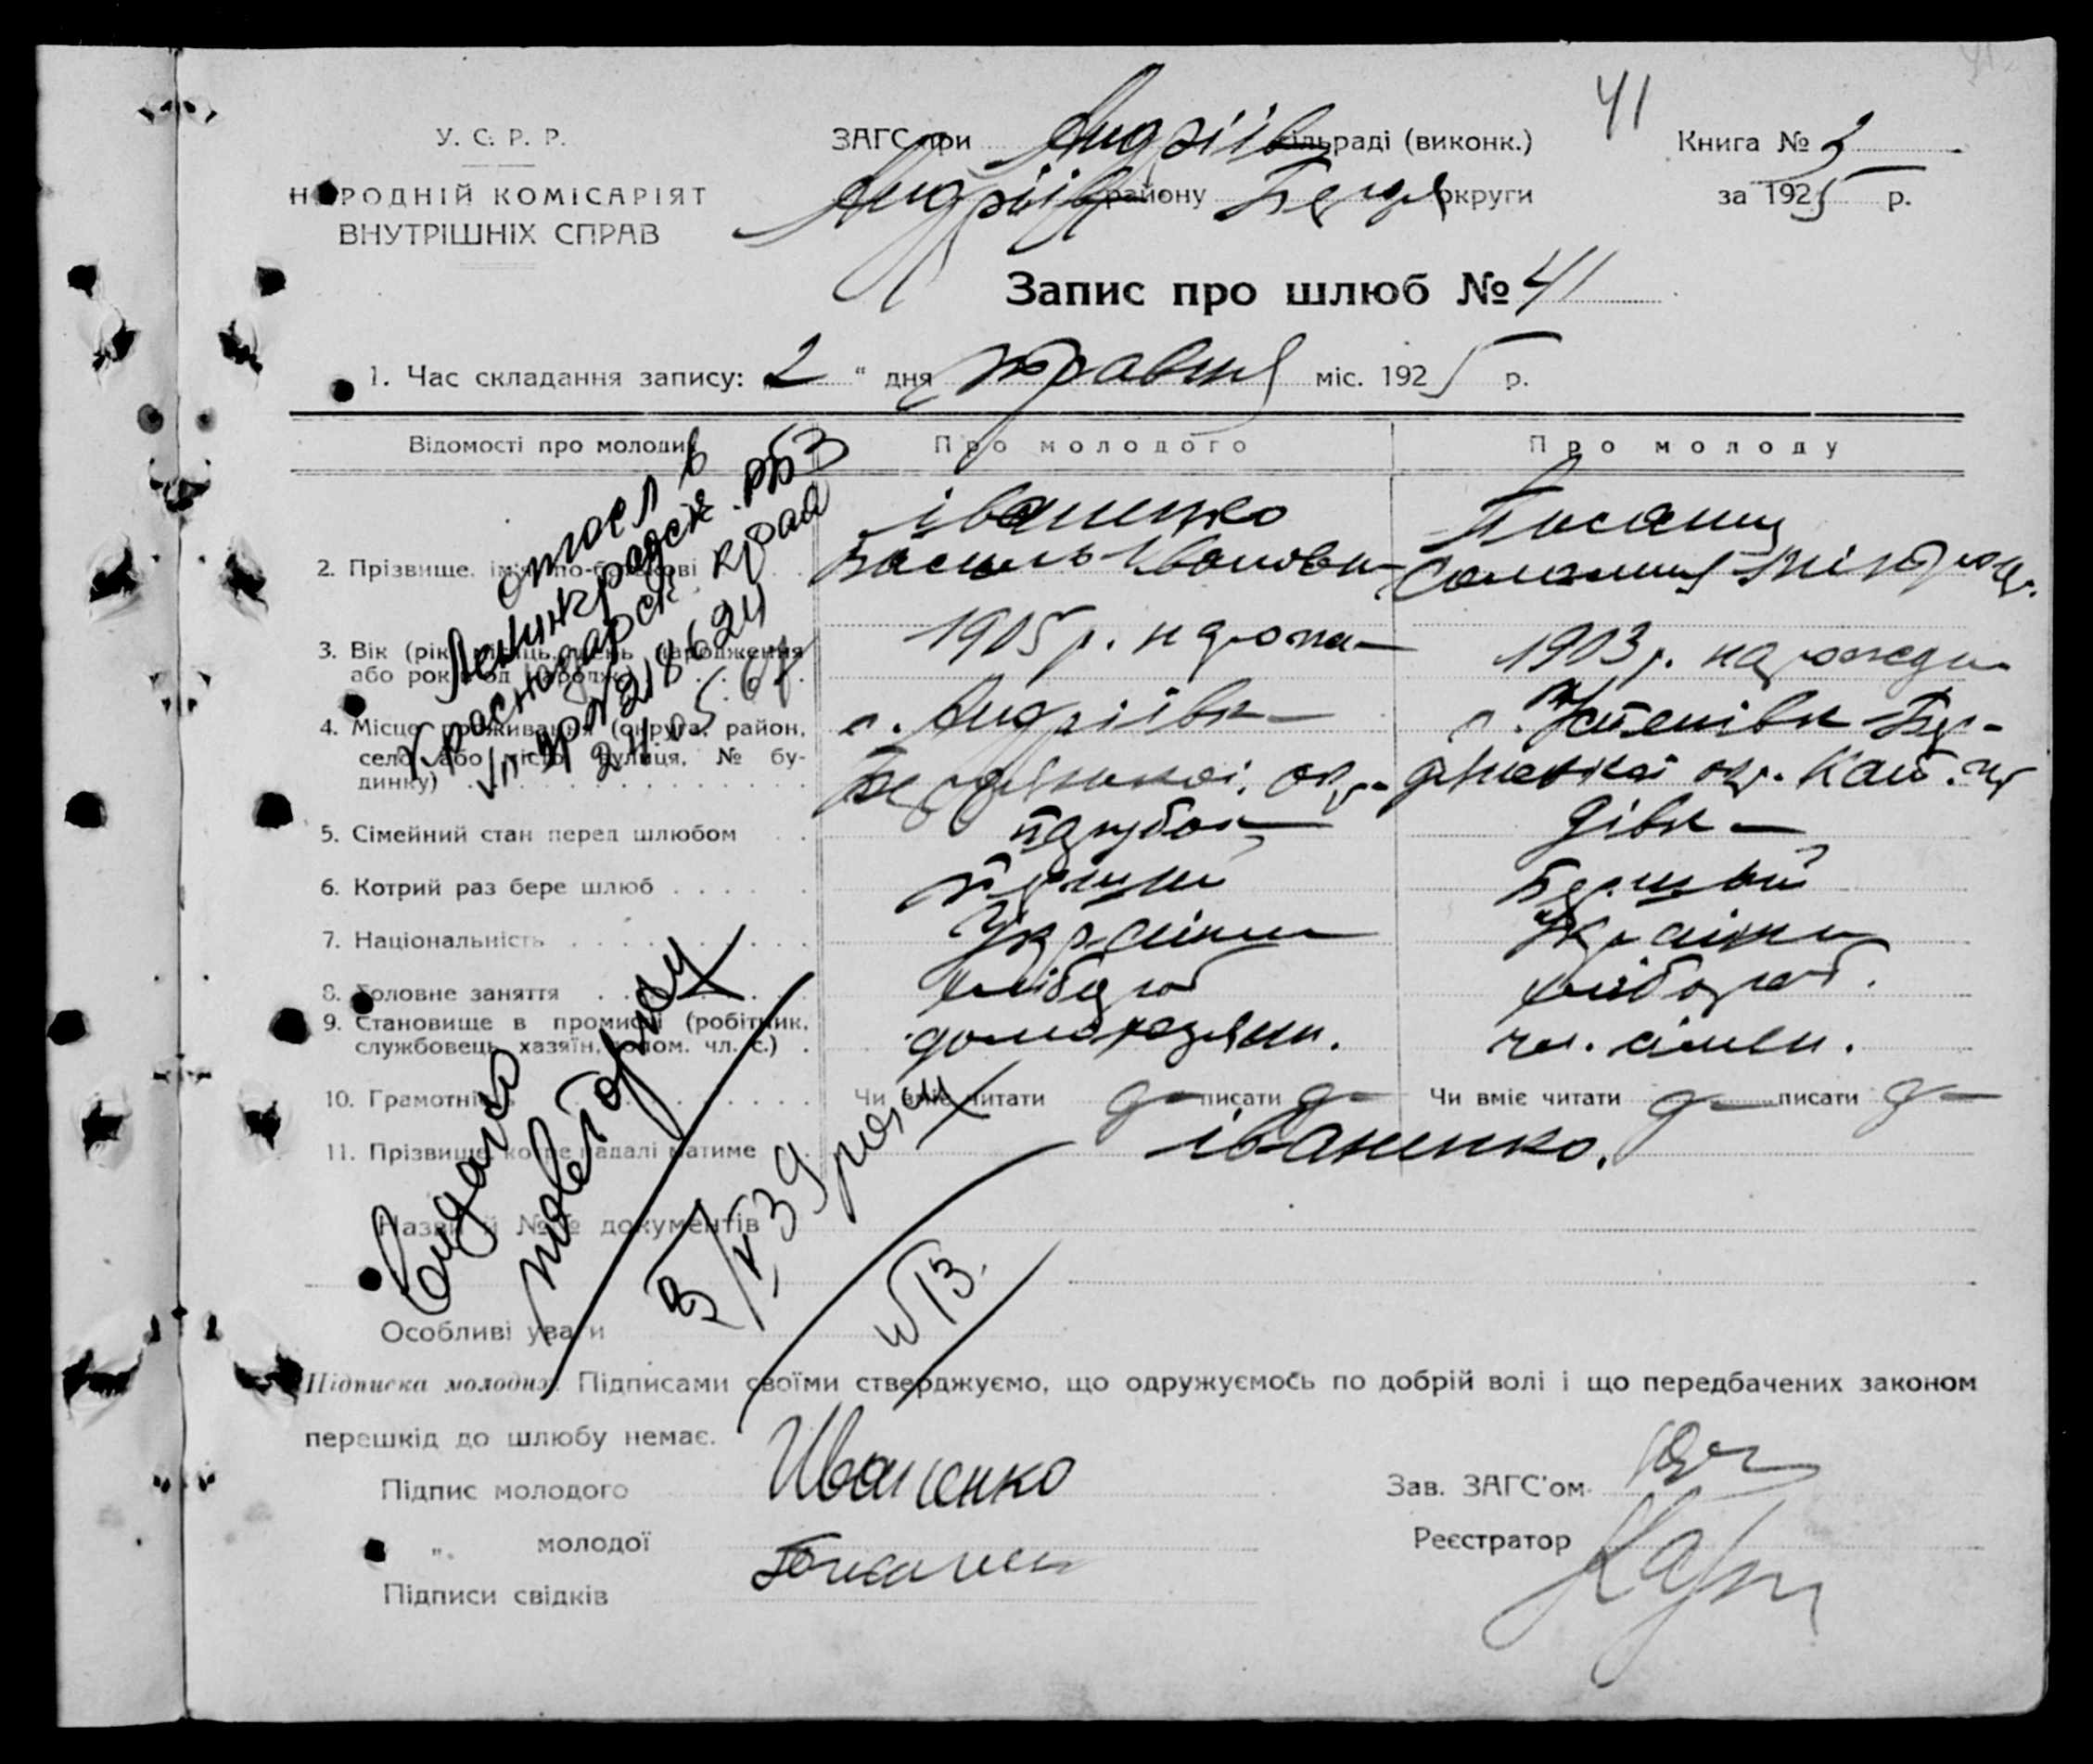 41
У. С. Р. Р.
НАРОДНІЙ КОМІСАРІЯТ
ВНУТРІШНІХ СПРАВ
ЗАГС при Андріїв сільраді (виконк.)
Андріїв району округи
Книга № 3
за 1925 р.
Запис про шлюб № 41
1. Час складання запису: „2“ дня травня міс. 1925 р.
Відомості про молодих
Про молодого
Про молоду
2. Прізвище, ім'я, по-батькові
Іваненко
Василь Іванови
Писанц
3. Вік (рік, місяць, день народження
або рок від народж.)
1905 р. народж
1903 р. народжен
4. Місце проживання (округа, район,
село або місто, вулиця, № бу-
динку)
с. Андріївк
Бердянської окр.
с. Устенівк Бер-
дянської окр.
5. Сімейний стан перед шлюбом
парубок
дівк
6. Котрий раз бере шлюб
перший
перший
7. Національність
Українец
Українк
8. Головне заняття
хлібороб
хлібороб.
9. Становище в промислі (робітник,
службовець, хазяїн, допом. чл. с.)
домохазяин.
чл. сімьи.
10. Грамотність
Чи вміє читати д писати д
Чи вміє читати д писати д
11. Прізвище, котре надалі матиме
Іваненко.
Назви й №№ документів
Особливі уваги
отосл в
Ленинградск. РБЗ
Краснодарск края
218624
24.05.67
Видано
повторну
5/V 39 року
Підписка молодих. Підписами своїми стверджуємо, що одружуємось по добрій волі і що передбачених законом
перешкід до шлюбу немає.
Підпис молодого Иваненко
„ молодої
Підписи свідків
Зав. ЗАГС'ом
Реєстратор